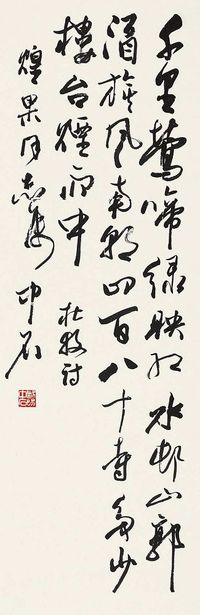 千里莺啼绿映红水邨山郭
酒旗风南朝四百八十寺多少
楼台烟雨中 杜牧诗
煌果同志属 中石